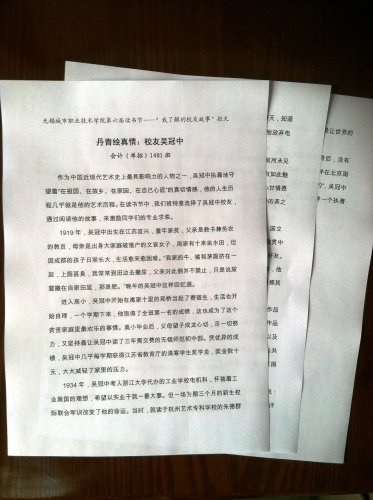 无锡城市职业技术学院第六届读书节——“我了解的校友故事”征文
丹青绘真情：校友吴冠中
会计（单招）1401班
作为中国近现代艺术史上最具影响力的人物之一，吴冠中执着地守
望着“在祖国、在故乡、在家园、在自己心底”的真切情感，他的人生历
程几乎就是他的艺术历程。在读书节中，我们班特意选择了吴冠中校友，
通过阅读他的故事，来激励同学们的专业求索。
1919年，吴冠中出生在江苏宜兴，童年家贫，父亲是教书兼务农
的教员，母亲是出身大家庭破落户的文盲女子，用家有十来亩水田，但
因成群的孩子日渐长大，生活愈来愈困难。“我家的牛、猪和茅厕挤在一
起，上厕甚臭，我常常到田边去撒尿，父亲对此倒并不禁止，只是说尿
要撒在自家田里，那是肥。”晚年的吴冠中这样回忆道。
进入高小，吴冠中开始在离家十里的和桥当起了寄宿生，生活也开
始自理，一个学期下来，他取得了全班第一名的成绩，这也成为了这个
贫苦家庭里最欢乐的事情。高小毕业后，父母望子成龙心切，尽一切努
力，又坚持着让吴冠中读了三年费交费的无锡师范初中部。凭优异的成
绩，吴冠中几乎每学期获得江苏省教育厅的清寒学生奖学金，奖金数十
元，大大减轻了家里的压力。
1934年，吴冠中考入浙江大学代办的工业学校电机科，怀揣着工
业救国的理想，希望以实业干就一番大事。但一场为期三个月的新生校
际联合军训改变了他的命运。当时，就读于杭州艺术专科学校的朱德群